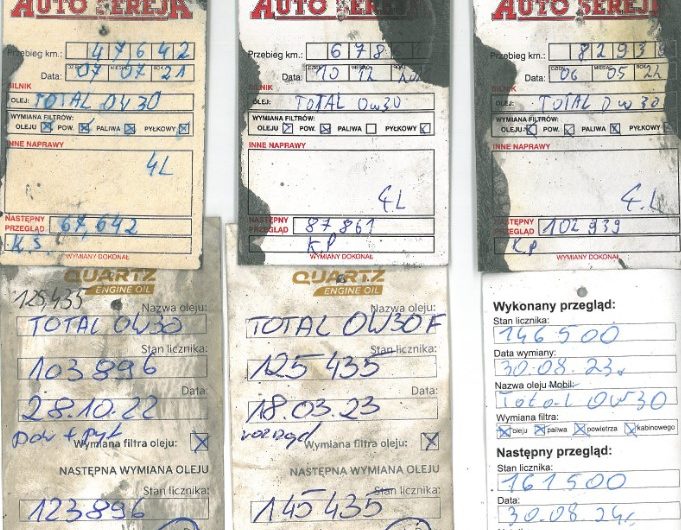 AUTO SEREJA
Przebieg km.: 47642
DZIEŃ MIESIĄC ROK
Data: 07 07 21
SILNIK
OLEJ: TOTAL 0W30
WYMIANA FILTRÓW:
OLEJU POW. PALIWA PYŁKOWY
INNE NAPRAWY
4L
NASTĘPNY PRZEGLĄD 67,642
K.S
WYMIANY DOKONAŁ
AUTO SEREJA
Przebieg km.: 6786
DZIEŃ MIESIĄC
Data: 10 12
SILNIK
OLEJ: TOTAL 0w30
WYMIANA FILTRÓW:
OLEJU POW. PALIWA PYŁKOWY
INNE NAPRAWY
4L
NASTĘPNY PRZEGLĄD 87,861
KP
WYMIANY DOKONAŁ
AUTO SEREJA
Przebieg km.: 8293
DZIEŃ MIESIĄC ROK
Data: 06 05 22
SILNIK
OLEJ: TOTAL 0w30
WYMIANA FILTRÓW:
OLEJU POW. PALIWA PYŁKOWY
INNE NAPRAWY
4.L
NASTĘPNY PRZEGLĄD 102939
KP
WYMIANY DOKONAŁ
QUARTZ
ENGINE OIL
125,435
Nazwa oleju:
TOTAL 0W30
Stan licznika:
103896
Data:
28.10.22
pow + pył
Wymiana filtra oleju:
NASTĘPNA WYMIANA OLEJU
Stan licznika:
123896
QUARTZ
ENGINE OIL
Nazwa oleju:
TOTAL 0W30 F
Stan licznika:
125435
Data:
18.03.23
Wymiana filtra oleju:
NASTĘPNA WYMIANA OLEJU
Stan licznika:
145435
Wykonany przegląd:
Stan licznika:
146500
Data wymiany:
30.08.23r
Nazwa oleju Mobil:
Total 0W30
Wymiana filtra:
oleju paliwa powietrza kabinowego
Następny przegląd:
Stan licznika:
161500
Data wymiany:
30.08.24r